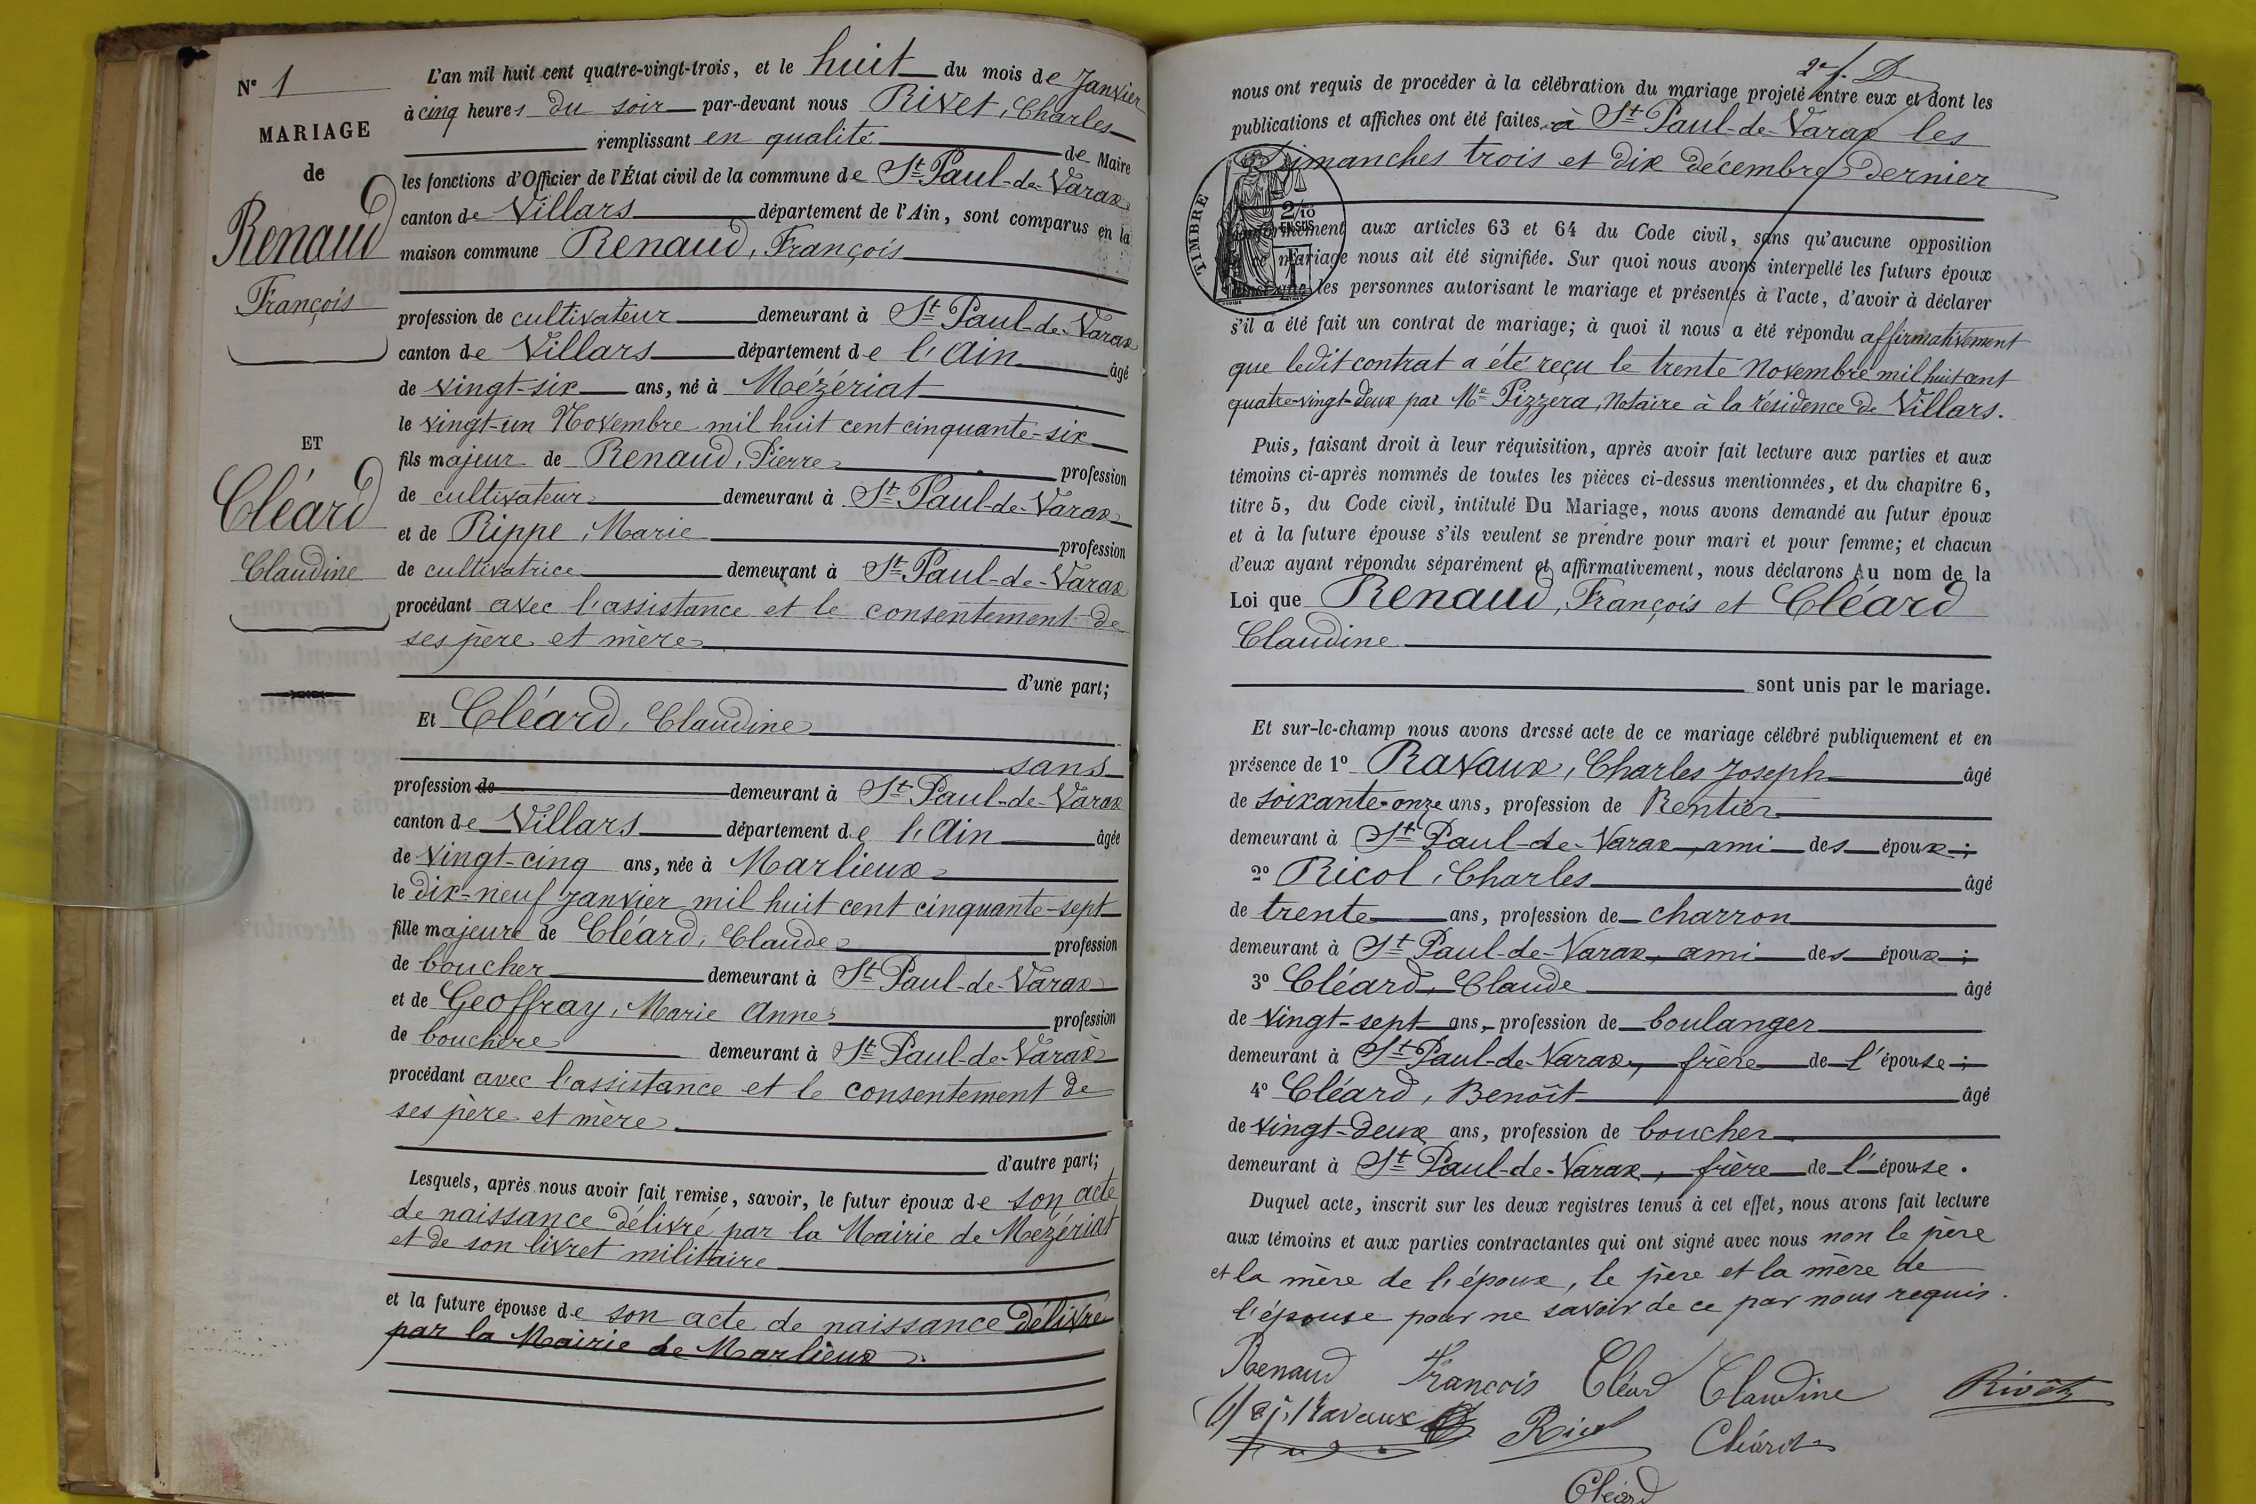 N° 1
MARIAGE
de
Renaud
François
ET
Cléard
Claudine
L'an mil huit cent quatre-vingt-trois, et le huit du mois de Janvier
à cinq heures du soir par-devant nous Rivet, Charles
remplissant en qualité de Maire
les fonctions d'Officier de l'État civil de la commune de St Paul-de-Varax
canton de Villars département de l'Ain, sont comparus en la
maison commune Renaud, François
profession de cultivateur demeurant à St Paul-de-Varax
canton de Villars département de l'Ain âgé
de vingt-six ans, né à Mézériat
le vingt-un Novembre mil huit cent cinquante-six
fils majeur de Renaud, Pierre profession
de cultivateur demeurant à St Paul-de-Varax
et de Rippe, Marie profession
de cultivatrice demeurant à St Paul-de-Varax
procédant avec l'assistance et le consentement de
ses père et mère
d'une part;
Et Cléard, Claudine
sans
profession de demeurant à St Paul-de-Varax
canton de Villars département de l'Ain âgée
de vingt-cinq ans, née à Marlieux
le dix-neuf Janvier mil huit cent cinquante-sept
fille majeure de Cléard, Claude profession
de boucher demeurant à St Paul-de-Varax
et de Geoffray, Marie Anne profession
de bouchère demeurant à St Paul-de-Varax
procédant avec l'assistance et le consentement de
ses père et mère
d'autre part;
Lesquels, après nous avoir fait remise, savoir, le futur époux de son acte
de naissance délivré par la Mairie de Mézériat
et de son livret militaire
et la future épouse de son acte de naissance délivré
par la Mairie de Marlieux
nous ont requis de procéder à la célébration du mariage projeté entre eux et dont les
publications et affiches ont été faites à St Paul-de-Varax les
Dimanches trois et dix décembre dernier
TIMBRE
2/10
EN SUS
conformément aux articles 63 et 64 du Code civil, sans qu'aucune opposition
mariage nous ait été signifiée. Sur quoi nous avons interpellé les futurs époux
que les personnes autorisant le mariage et présentes à l'acte, d'avoir à déclarer
s'il a été fait un contrat de mariage; à quoi il nous a été répondu affirmativement
que ledit contrat a été reçu le trente Novembre mil huit cent
quatre-vingt-deux par Me Pizzera, Notaire à la résidence de Villars.
Puis, faisant droit à leur réquisition, après avoir fait lecture aux parties et aux
témoins ci-après nommés de toutes les pièces ci-dessus mentionnées, et du chapitre 6,
titre 5, du Code civil, intitulé Du Mariage, nous avons demandé au futur époux
et à la future épouse s'ils veulent se prendre pour mari et pour femme; et chacun
d'eux ayant répondu séparément et affirmativement, nous déclarons Au nom de la
Loi que Renaud, François et Cléard
Claudine
sont unis par le mariage.
Et sur-le-champ nous avons dressé acte de ce mariage célébré publiquement et en
présence de 1° Ravaux, Charles Joseph âgé
de soixante-onze ans, profession de Rentier
demeurant à St Paul-de-Varax, ami des époux;
2° Ricol, Charles âgé
de trente ans, profession de charron
demeurant à St Paul-de-Varax, ami des époux;
3° Cléard, Claude âgé
de vingt-sept ans, profession de boulanger
demeurant à St Paul-de-Varax, frère de l'épouse;
4° Cléard, Benoît âgé
de vingt-deux ans, profession de boucher
demeurant à St Paul-de-Varax, frère de l'épouse.
Duquel acte, inscrit sur les deux registres tenus à cet effet, nous avons fait lecture
aux témoins et aux parties contractantes qui ont signé avec nous non le père
et la mère de l'époux, le père et la mère de
l'épouse pour ne savoir de ce par nous requis.
Renaud François Cléard Claudine Rivet
Ravaux Ricol Cléard
Cléard